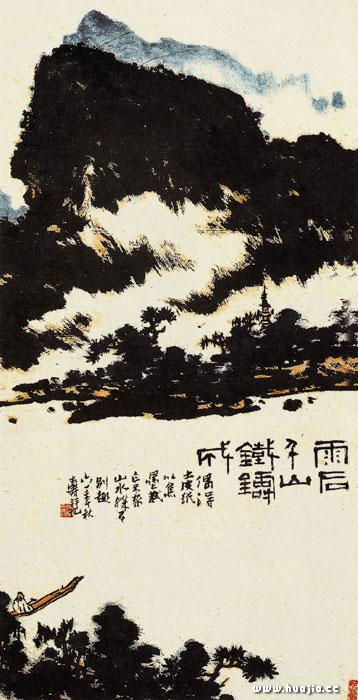 雨后
千山
鐵鑄
成
偶得
紙
以焦
墨
米家
山水殊有
別趣
六一年秋
壽
www.huajia.cc